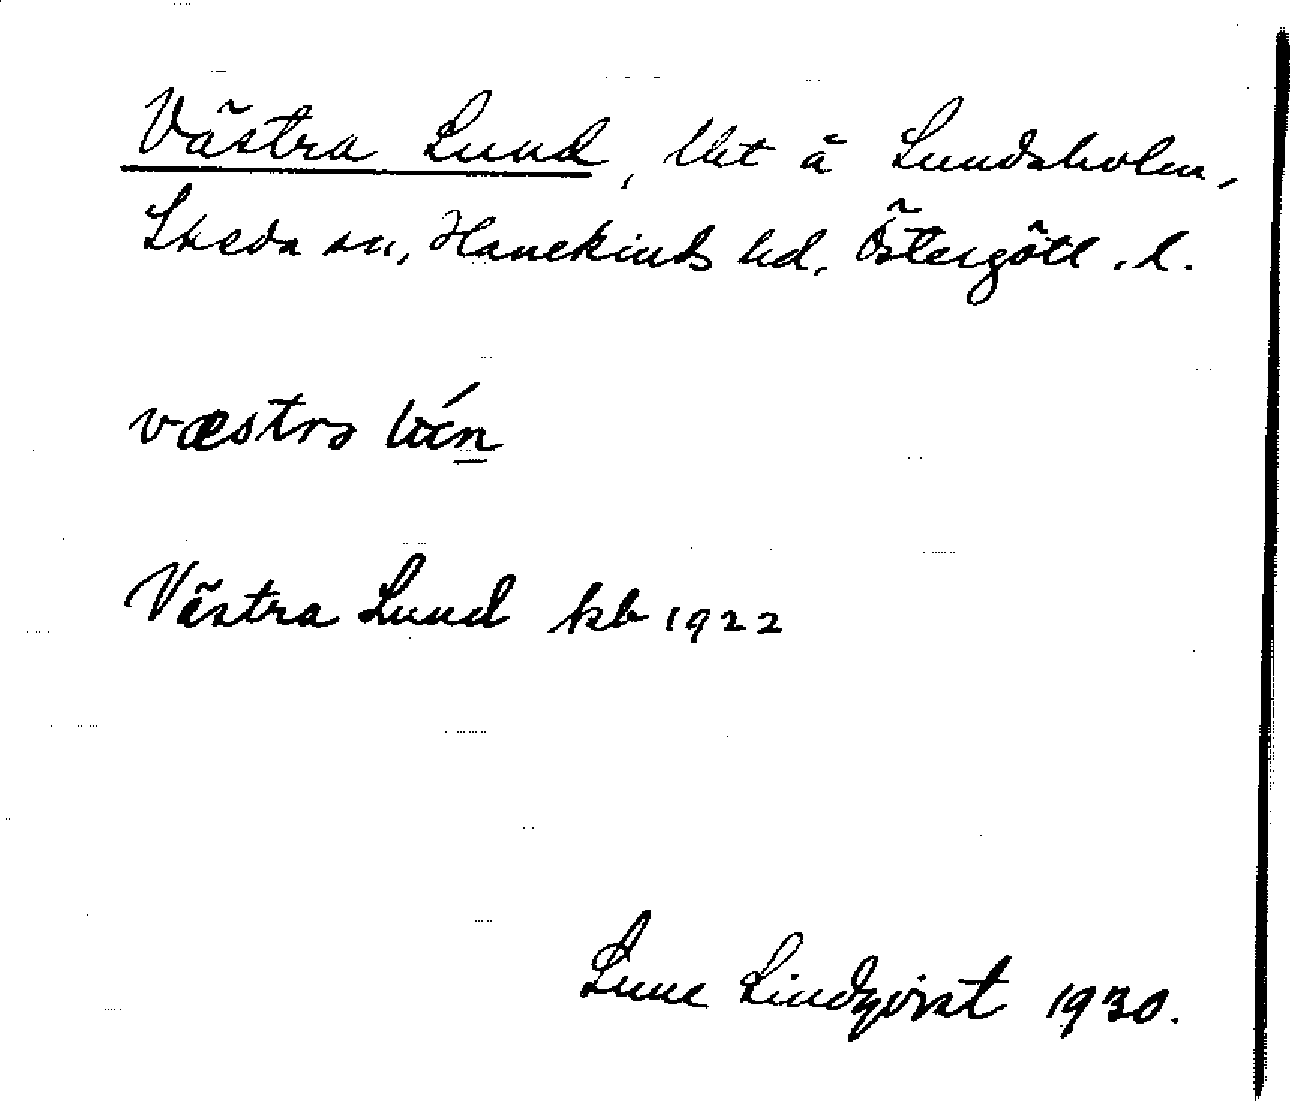 Västra Lund, lht å Lundsholm,
Skeda sn, Hanekinds hd, Östergötl. l.
væstrɔ
Västra Lund kb 1922
Sune Lindqvist 1930.